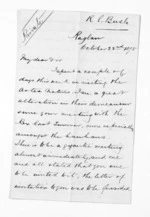 R. C. Bush
Private
Raglan
October 22nd 1875
My dear Sir
I spent a couple of
days this week in meeting the
natives There is a great
alteration in their demeanour
since your meeting with the
last Summer, more especially
amongst the Hauhaus.
There is to be a gigantic meeting
almost immediately and Rewi
and all stated that you are
to be invited to it; the letter of
invitation to you was to be forwarded